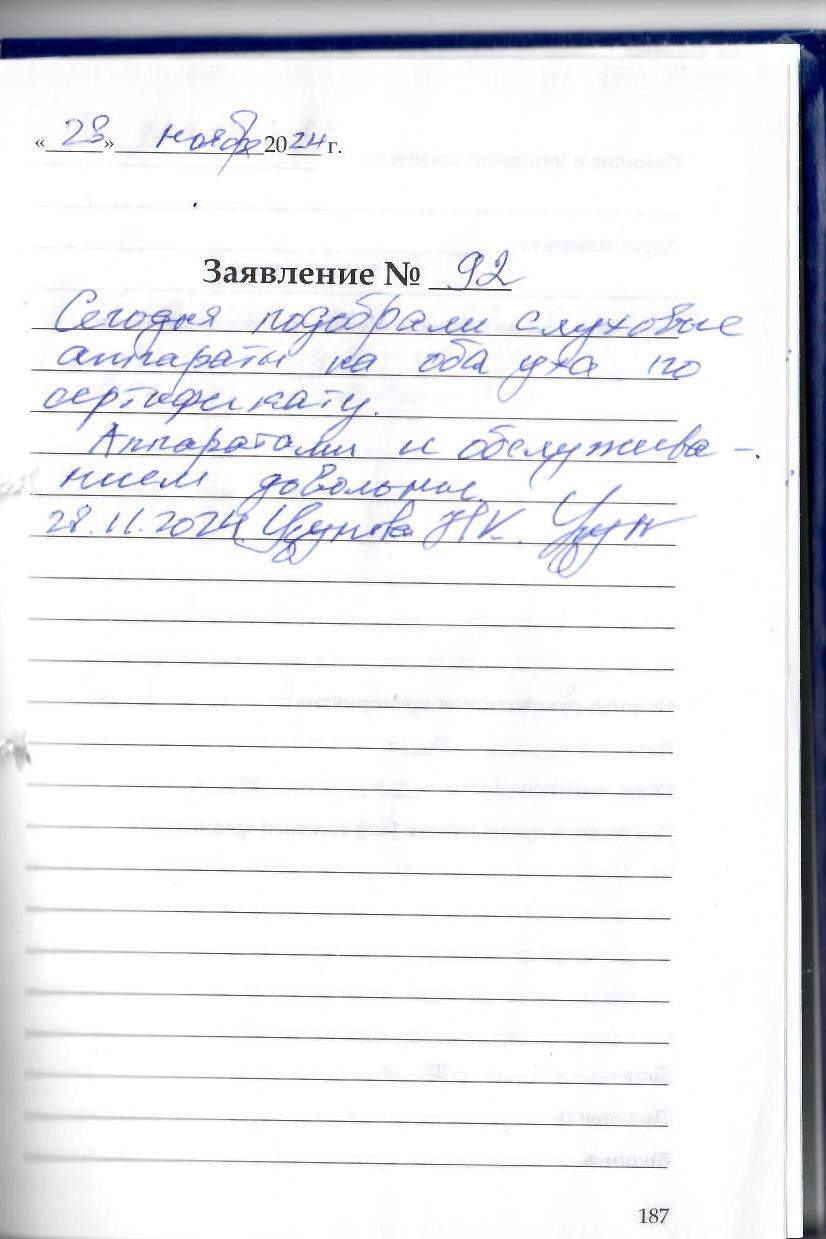 «28» ноября 2024 г.
Заявление № 92
Сегодня подобрали слуховые
аппараты на оба уха по
сертификату.
Аппаратами и обслужива-
нием довольны.
28.11.2024
187